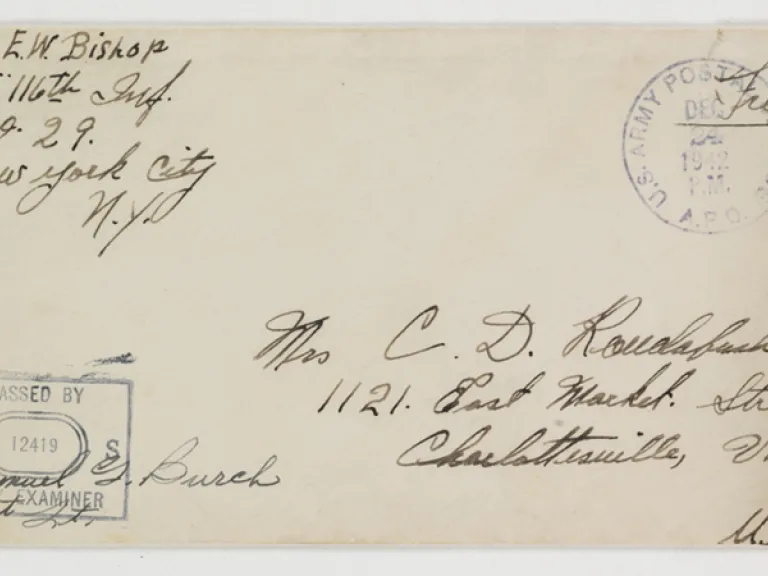 E.W. Bishop
116th Inf.
29.
w York City
N.Y.
U.S. ARMY POSTA
DEC
24
1942
P.M.
A.P.O.
Mrs C. D. Roudabush
1121. East Market. Str
Charlottesville, V
U.
ASSED BY
12419
S
muel G. Burch
EXAMINER
t Lt.